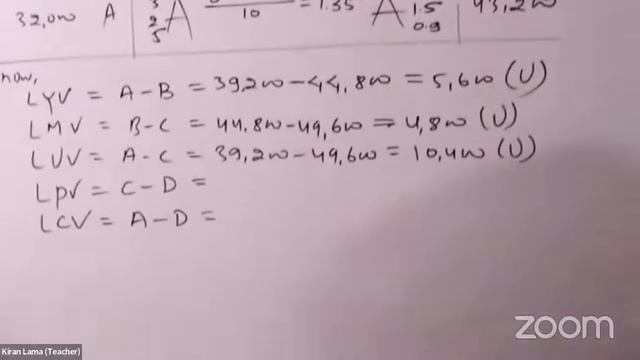 32,000 A 3 2 5 A 10 = 1.35 A 1.5 0.9 43,200
now,
LYV = A-B = 39,200-44,800 = 5,600 (U)
LMV = B-C = 44,800-49,600 = 4,800 (U)
LUV = A-C = 39,200-49,600 = 10,400 (U)
LPV = C-D =
LCV = A-D =
zoom
Kiran Lama (Teacher)